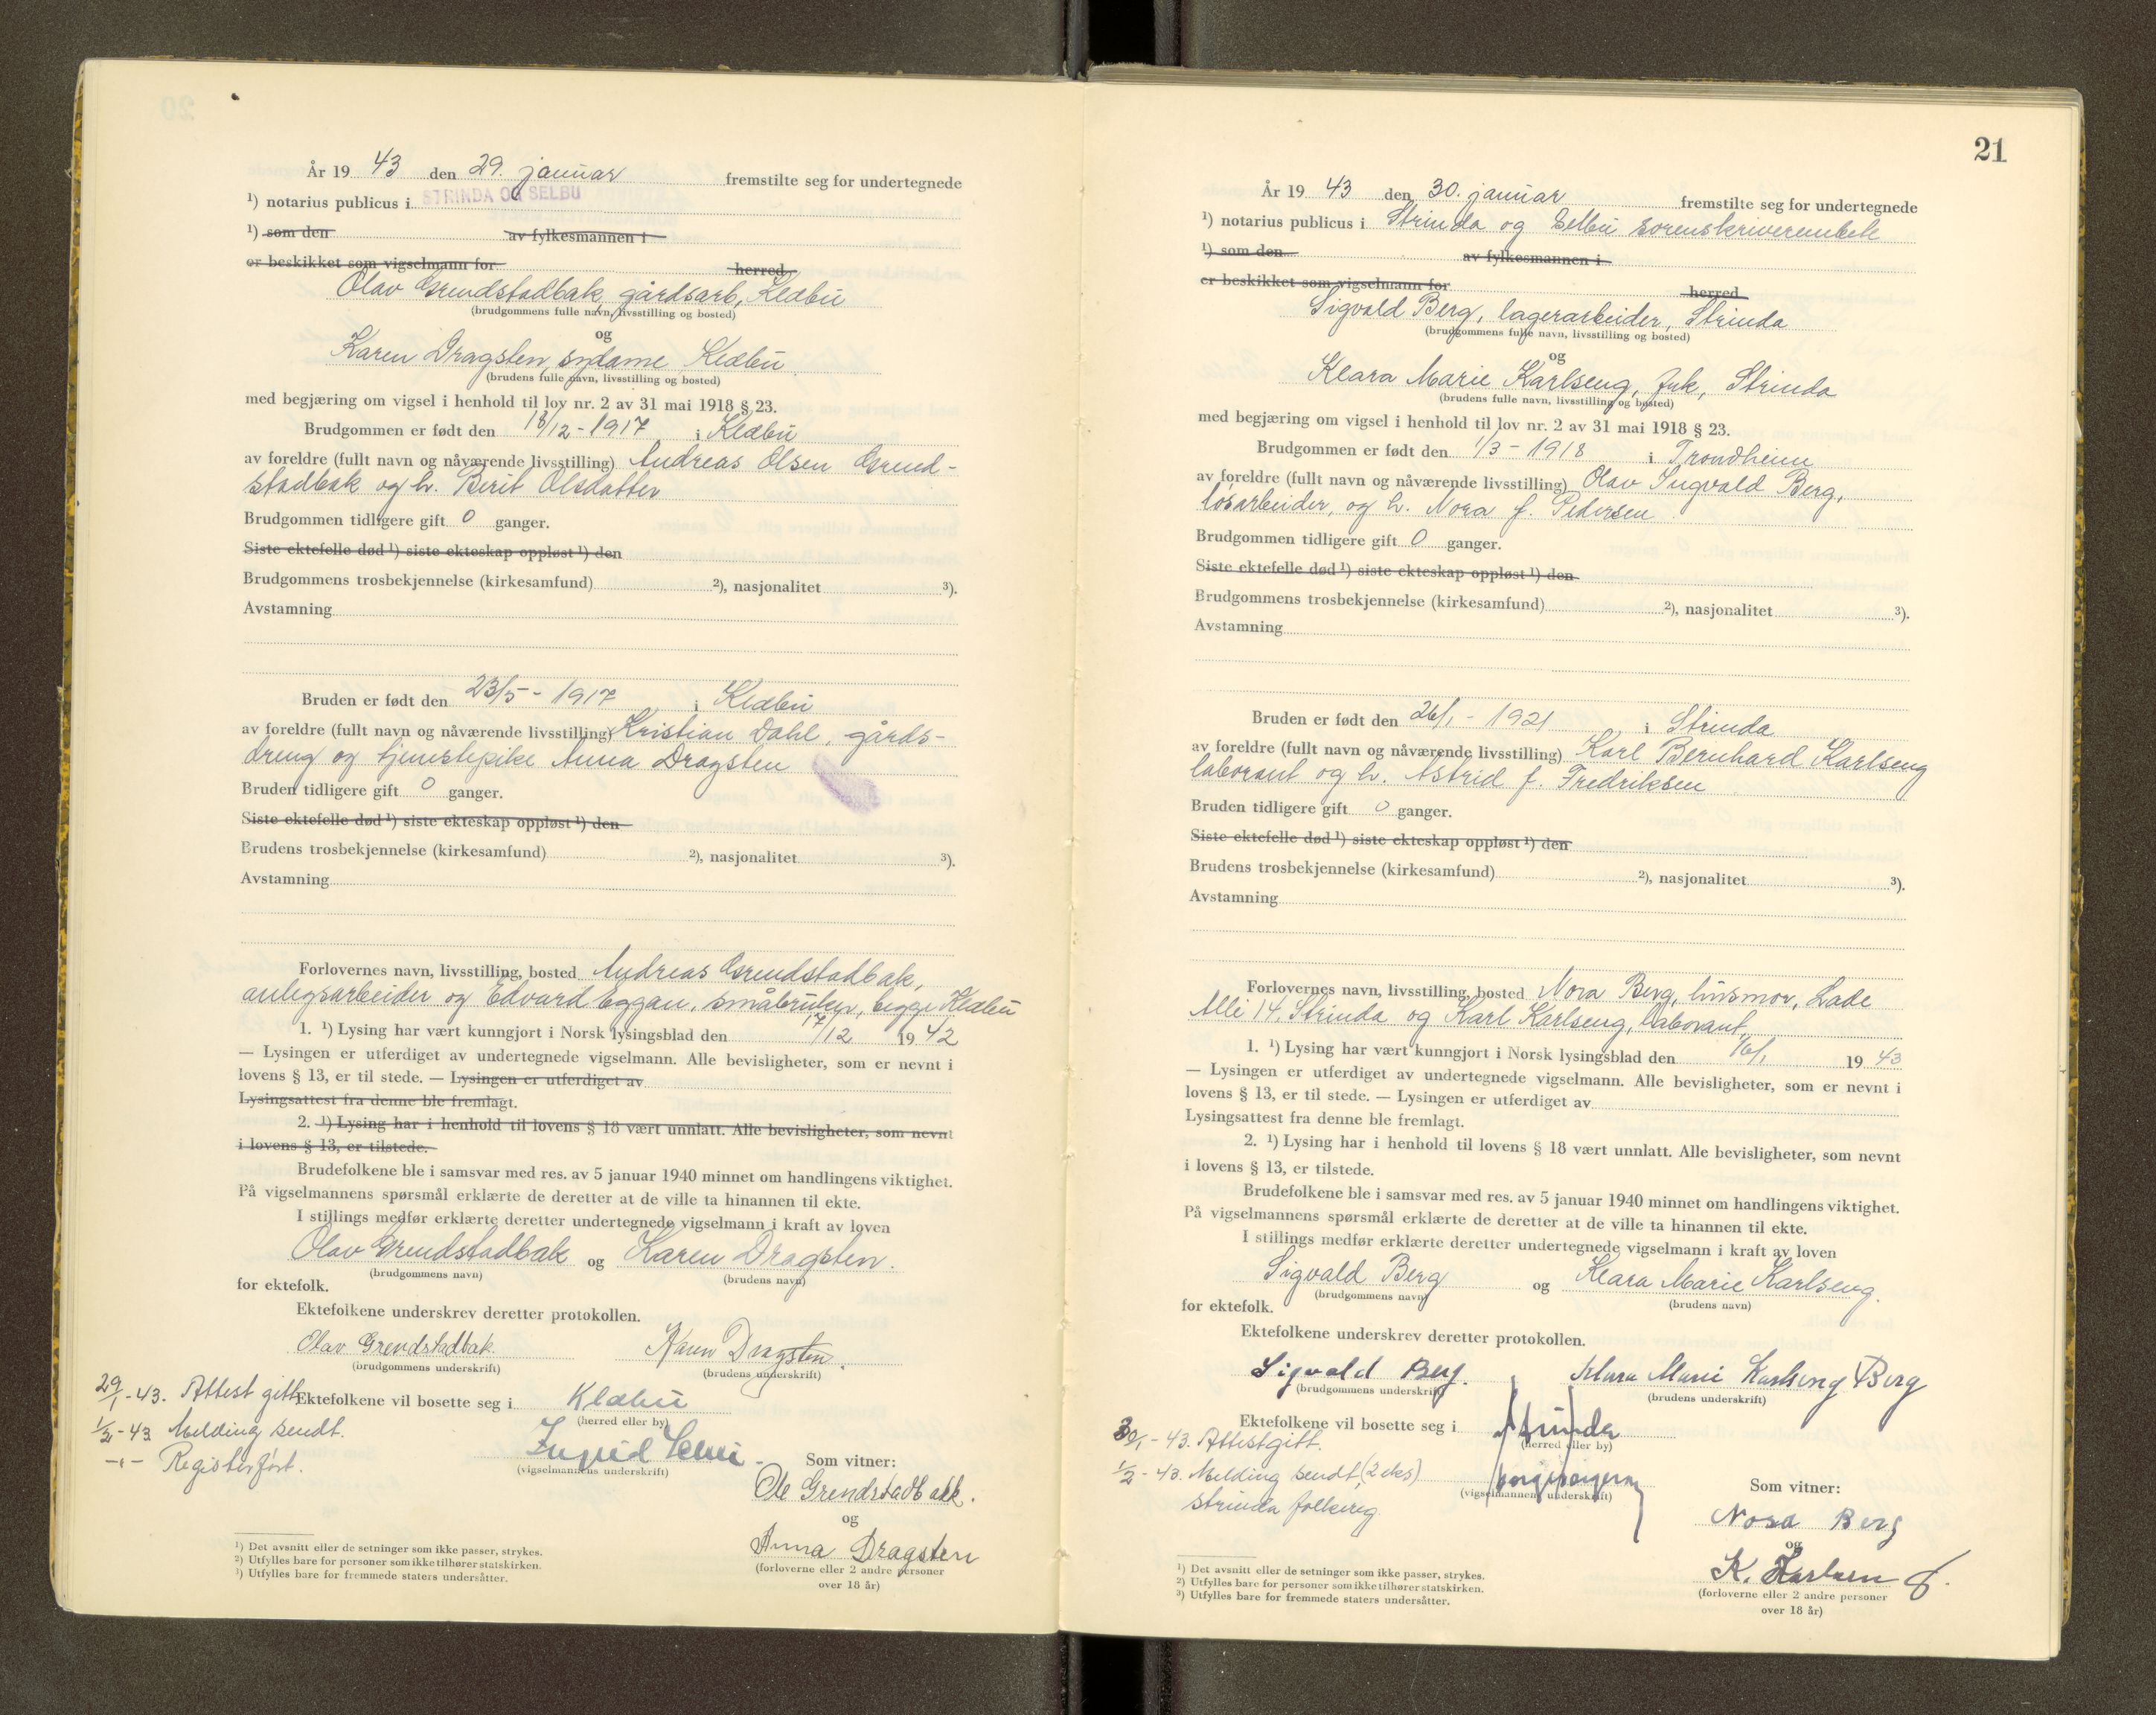 År 19 43 den 29. januar fremstilte seg for undertegnede
¹) notarius publicus i STRINDA OG SELBU
¹) som den av fylkesmannen i
er beskikket som vigselmann for herred
Olav Grendstadbak, gårdsarb, Klæbu
(brudgommens fulle navn, livsstilling og bosted)
og
Karen Dragsten, sydame, Klæbu
(brudens fulle navn, livsstilling og bosted)
med begjæring om vigsel i henhold til lov nr. 2 av 31 mai 1918 § 23.
Brudgommen er født den 18/12 - 1917 i Klæbu
av foreldre (fullt navn og nåværende livsstilling) Andreas Olsen Grend-
stadbak og h. Berit Olsdatter
Brudgommen tidligere gift 0 ganger.
Siste ektefelle død ¹) siste ekteskap oppløst ¹) den
Brudgommens trosbekjennelse (kirkesamfund) ²), nasjonalitet ³).
Avstamning
Bruden er født den 23/5 - 1917 i Klæbu
av foreldre (fullt navn og nåværende livsstilling) Kristian Dahl, gårds-
dreng og tjenestepike Anna Dragsten
Bruden tidligere gift 0 ganger.
Siste ektefelle død ¹) siste ekteskap oppløst ¹) den
Brudens trosbekjennelse (kirkesamfund) ²), nasjonalitet ³).
Avstamning
Forlovernes navn, livsstilling, bosted Andreas Grendstadbak,
anlegsarbeider og Edvard Eggan, småbruker, begge Klæbu
1. ¹) Lysing har vært kunngjort i Norsk lysingsblad den 17/12 19 42
— Lysingen er utferdiget av undertegnede vigselmann. Alle bevisligheter, som er nevnt i
lovens § 13, er til stede. — Lysingen er utferdiget av
Lysingsattest fra denne ble fremlagt.
2. ¹) Lysing har i henhold til lovens § 18 vært unnlatt. Alle bevisligheter, som nevnt
i lovens § 13, er tilstede.
Brudefolkene ble i samsvar med res. av 5 januar 1940 minnet om handlingens viktighet.
På vigselmannens spørsmål erklærte de deretter at de ville ta hinannen til ekte.
I stillings medfør erklærte deretter undertegnede vigselmann i kraft av loven
Olav Grendstadbak og Karen Dragsten.
(brudgommens navn) (brudens navn)
for ektefolk.
Ektefolkene underskrev deretter protokollen.
Olav Grendstadbak Karen Dragsten.
(brudgommens underskrift) (brudens underskrift)
29/1-43. Attest gitt. Ektefolkene vil bosette seg i Klæbu
(herred eller by)
1/2-43 Melding sendt.
-"- Registerført.
Ingrid
(vigselmannens underskrift)
Som vitner:
Ole Grendstadbakk.
og
Anna Dragsten
(forloverne eller 2 andre personer
over 18 år)
¹) Det avsnitt eller de setninger som ikke passer, strykes.
²) Utfylles bare for personer som ikke tilhører statskirken.
³) Utfylles bare for fremmede staters undersåtter.
21
År 19 43 den 30. januar fremstilte seg for undertegnede
¹) notarius publicus i Strinda og Selbu sorenskriverembete
¹) som den av fylkesmannen i
er beskikket som vigselmann for herred
Sigvald Berg, lagerarbeider, Strinda
(brudgommens fulle navn, livsstilling og bosted)
og
Klara Marie Karlseng, frk, Strinda
(brudens fulle navn, livsstilling og bosted)
med begjæring om vigsel i henhold til lov nr. 2 av 31 mai 1918 § 23.
Brudgommen er født den 1/3 - 1918 i Trondheim
av foreldre (fullt navn og nåværende livsstilling) Olav Ingvald Berg,
løsarbeider, og h. Nora f. Pedersen
Brudgommen tidligere gift 0 ganger.
Siste ektefelle død ¹) siste ekteskap oppløst ¹) den
Brudgommens trosbekjennelse (kirkesamfund) ²), nasjonalitet ³).
Avstamning
Bruden er født den 26/1 - 1921 i Strinda
av foreldre (fullt navn og nåværende livsstilling) Karl Bernhard Karlseng
laborant og h. Astrid f. Fredriksen
Bruden tidligere gift 0 ganger.
Siste ektefelle død ¹) siste ekteskap oppløst ¹) den
Brudens trosbekjennelse (kirkesamfund) ²), nasjonalitet ³).
Avstamning
Forlovernes navn, livsstilling, bosted Nora Berg, husmor, Lade
Alle 14, Strinda og Karl Karlseng, laborant,
1. ¹) Lysing har vært kunngjort i Norsk lysingsblad den 16/1 19 43
— Lysingen er utferdiget av undertegnede vigselmann. Alle bevisligheter, som er nevnt i
lovens § 13, er til stede. — Lysingen er utferdiget av
Lysingsattest fra denne ble fremlagt.
2. ¹) Lysing har i henhold til lovens § 18 vært unnlatt. Alle bevisligheter, som nevnt
i lovens § 13, er tilstede.
Brudefolkene ble i samsvar med res. av 5 januar 1940 minnet om handlingens viktighet.
På vigselmannens spørsmål erklærte de deretter at de ville ta hinannen til ekte.
I stillings medfør erklærte deretter undertegnede vigselmann i kraft av loven
Sigvald Berg og Klara Marie Karlseng.
(brudgommens navn) (brudens navn)
for ektefolk.
Ektefolkene underskrev deretter protokollen.
Sigvald Berg. Klara Marie Karlseng Berg
(brudgommens underskrift) (brudens underskrift)
Ektefolkene vil bosette seg i Strinda
(herred eller by)
30/1-43. Attest gitt.
1/2-43. Melding sendt (2 eks)
Strinda folkereg.
(vigselmannens underskrift)
Som vitner:
Nora Berg
og
K. Karlsen
(forloverne eller 2 andre personer
over 18 år)
¹) Det avsnitt eller de setninger som ikke passer, strykes.
²) Utfylles bare for personer som ikke tilhører statskirken.
³) Utfylles bare for fremmede staters undersåtter.